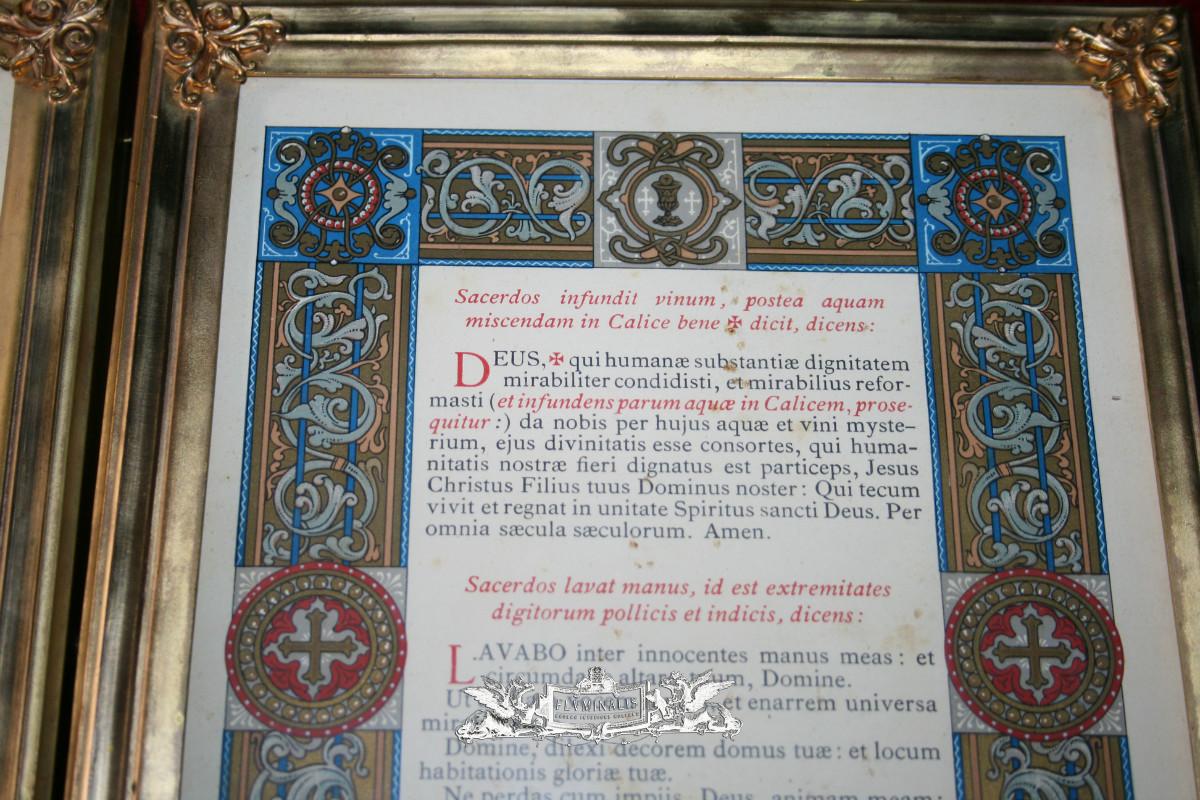 Sacerdos infundit vinum, postea aquam
miscendam in Calice bene ✠ dicit, dicens:
DEUS, ✠ qui humanæ substantiæ dignitatem
mirabiliter condidisti, et mirabilius refor-
masti (et infundens parum aquæ in Calicem, prose-
quitur:) da nobis per hujus aquæ et vini myste-
rium, ejus divinitatis esse consortes, qui huma-
nitatis nostræ fieri dignatus est particeps, Jesus
Christus Filius tuus Dominus noster: Qui tecum
vivit et regnat in unitate Spiritus sancti Deus. Per
omnia sæcula sæculorum. Amen.
Sacerdos lavat manus, id est extremitates
digitorum pollicis et indicis, dicens:
LAVABO inter innocentes manus meas: et
Domine.
Ut et enarrem universa
FLVMINALIS
Domine, dilexi decorem domus tuæ: et locum
habitationis gloriæ tuæ.
Ne perdas cum impiis, Deus, animam meam: